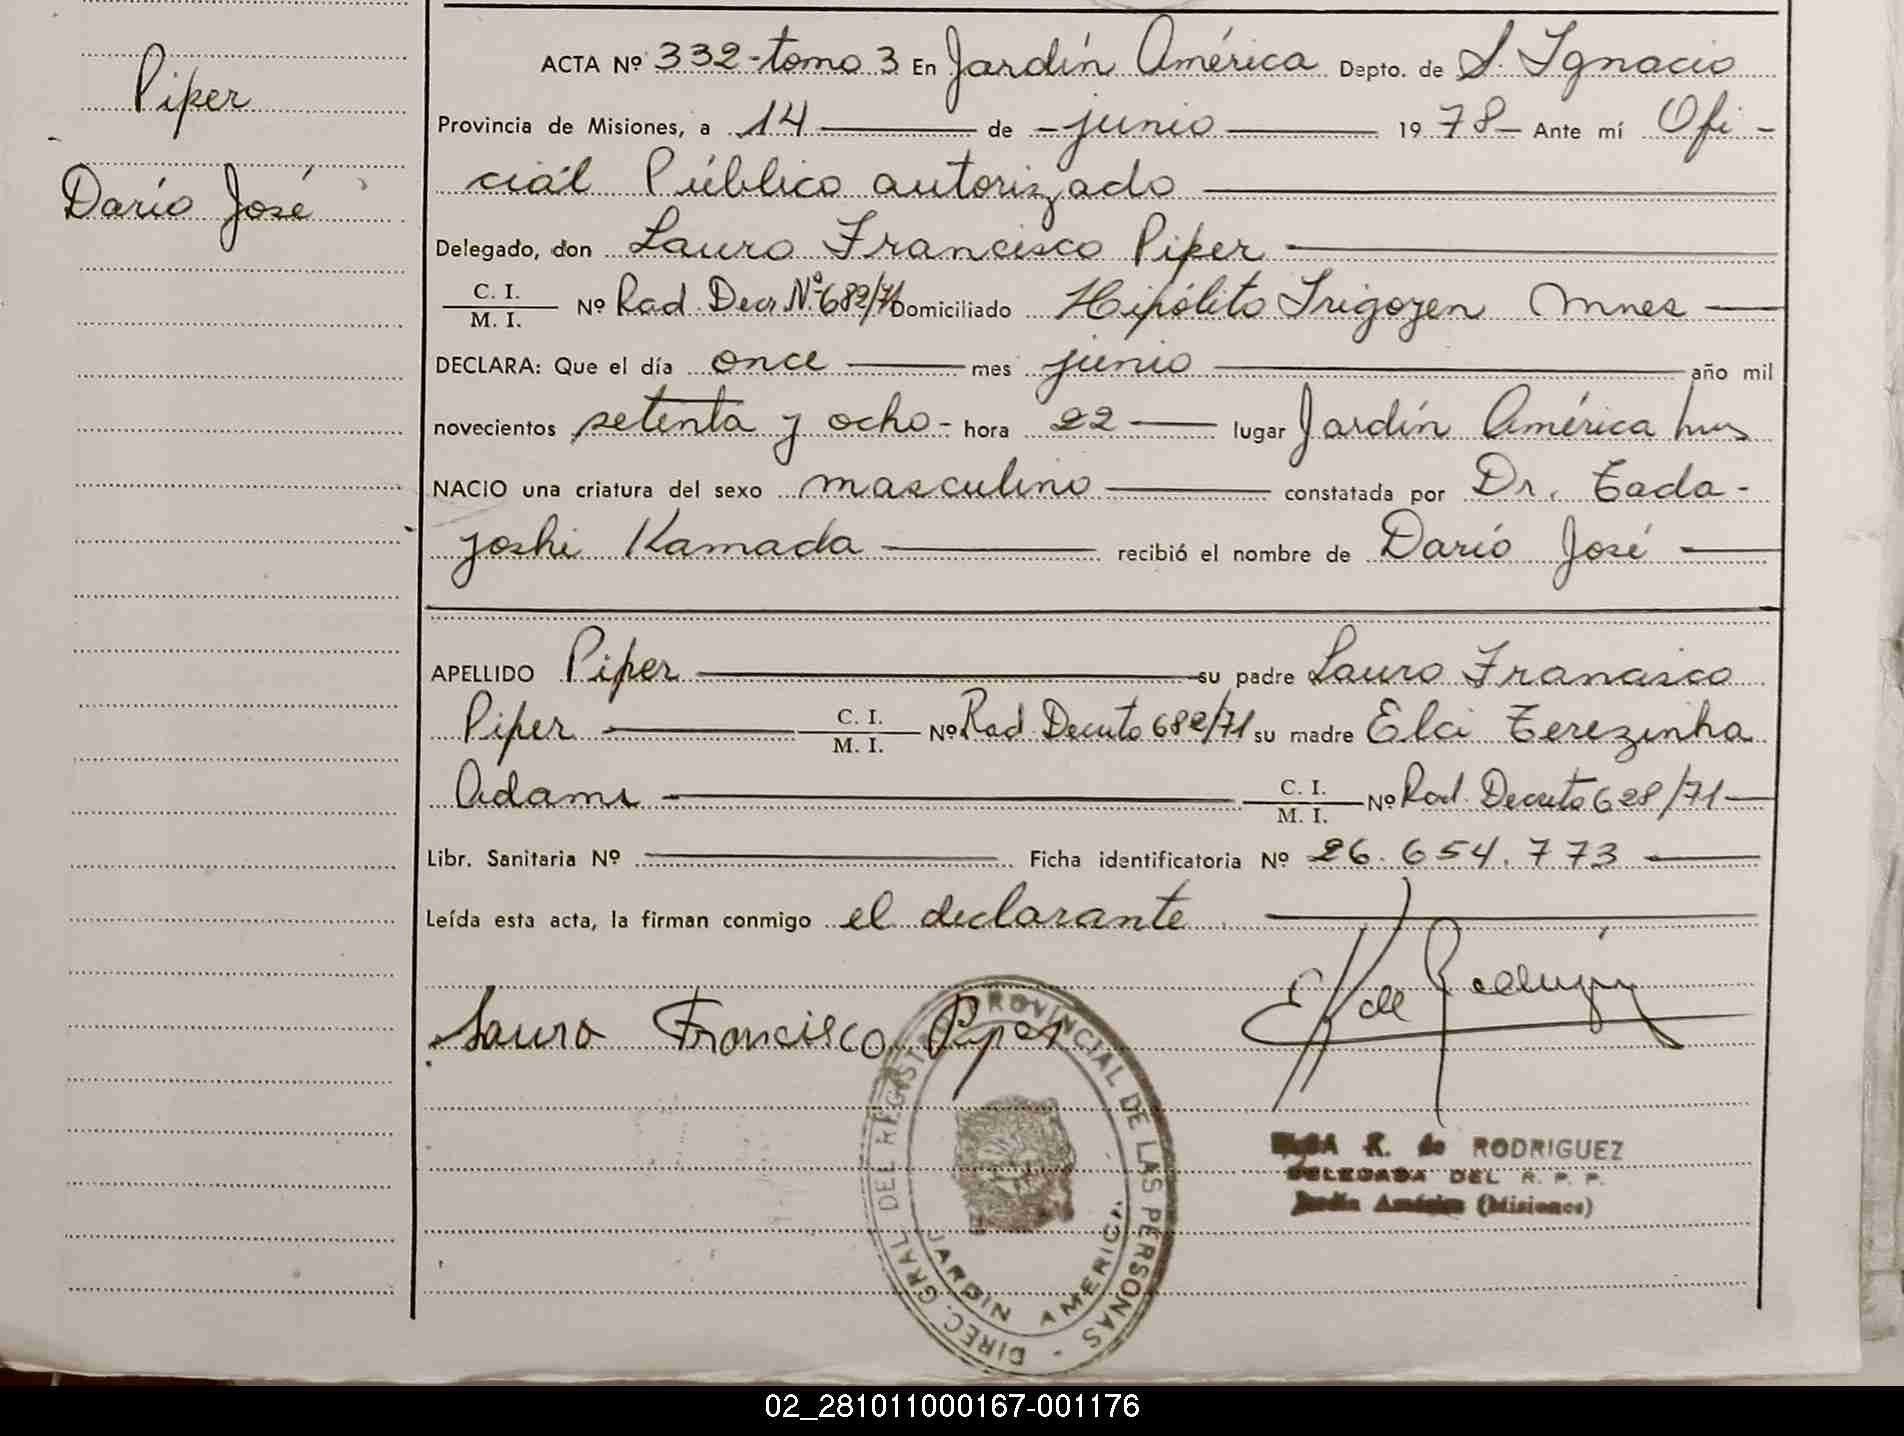 Piper
Darío José
ACTA Nº 332-tomo 3 En Jardín América Depto. de S. Ignacio
Provincia de Misiones, a 14 de junio 1978 Ante mí Ofi-
ciál Público autorizado
Delegado, don Lauro Francisco Piper
C. I.
M. I. Nº Rad. Decr. Nº 682/71 Domiciliado Hipólito Irigoyen Mnes
DECLARA: Que el día once mes junio año mil
novecientos setenta y ocho- hora 22 lugar Jardín América
NACIO una criatura del sexo masculino constatada por Dr. Tada-
yoshi Kamada recibió el nombre de Darío José
APELLIDO Piper su padre Lauro Francisco
Piper C. I.
M. I. Nº Rad. Decreto 682/71 su madre Elci Terezinha
Adami C. I.
M. I. Nº Rad. Decreto 628/71
Libr. Sanitaria Nº Ficha identificatoria Nº 26.654.773
Leída esta acta, la firman conmigo el declarante
Lauro Francisco Piper
DIREC. GRAL. DEL REGISTRO PROVINCIAL DE LAS PERSONAS -
JARDIN AMERICA
K. de RODRIGUEZ
DELEGADA DEL R. P. P.
Jardín América (Misiones)
02_281011000167-001176